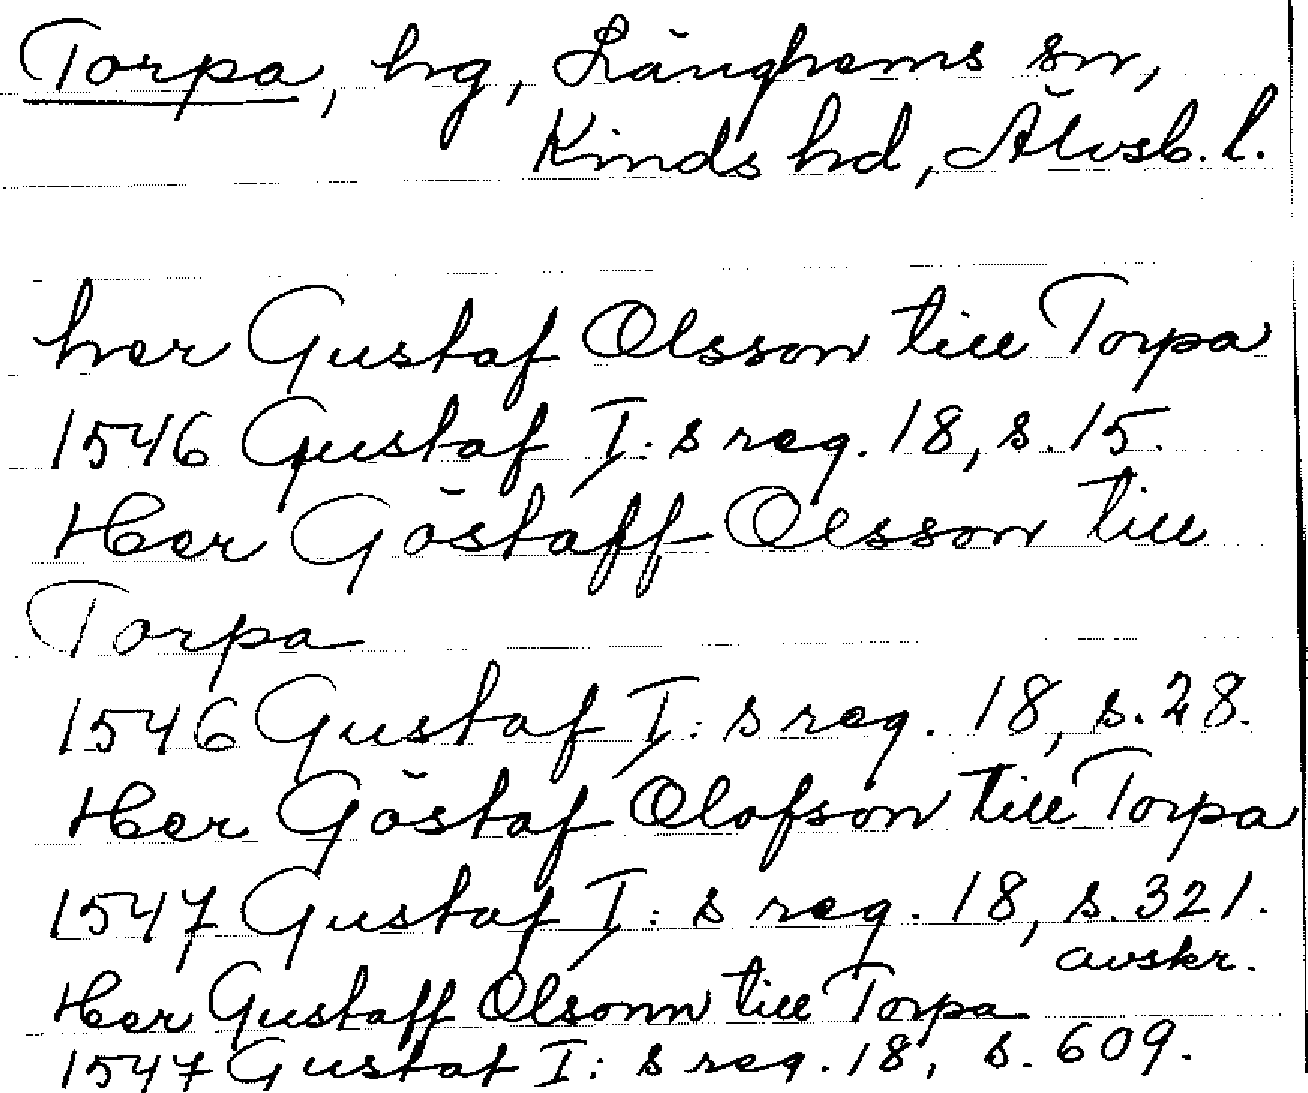 Torpa, hg, Länghems sn,
Kinds hd, Älvsb. l.
her Gustaf Olsson till Torpa
1546 Gustaf I:s reg. 18, s. 15.
Her Göstaff Olsson till
Torpa
1546 Gustaf I:s reg. 18, s. 28.
Her Göstaf Olofson till Torpa
1547 Gustaf I:s reg. 18, s. 321.
avskr.
Her Gustaff Olsonn till Torpa
1547 Gustaf I:s reg. 18, s. 609.